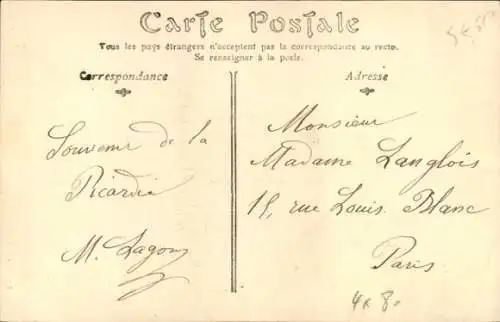 Carte Postale
Tous les pays étrangers n'acceptent pas la correspondance au recto.
Se renseigner à la poste.
Correspondance
Adresse
Souvenir de la
Picardie
M. Lagouy
Monsieur
Madame Langlois
15, rue Louis Blanc
Paris